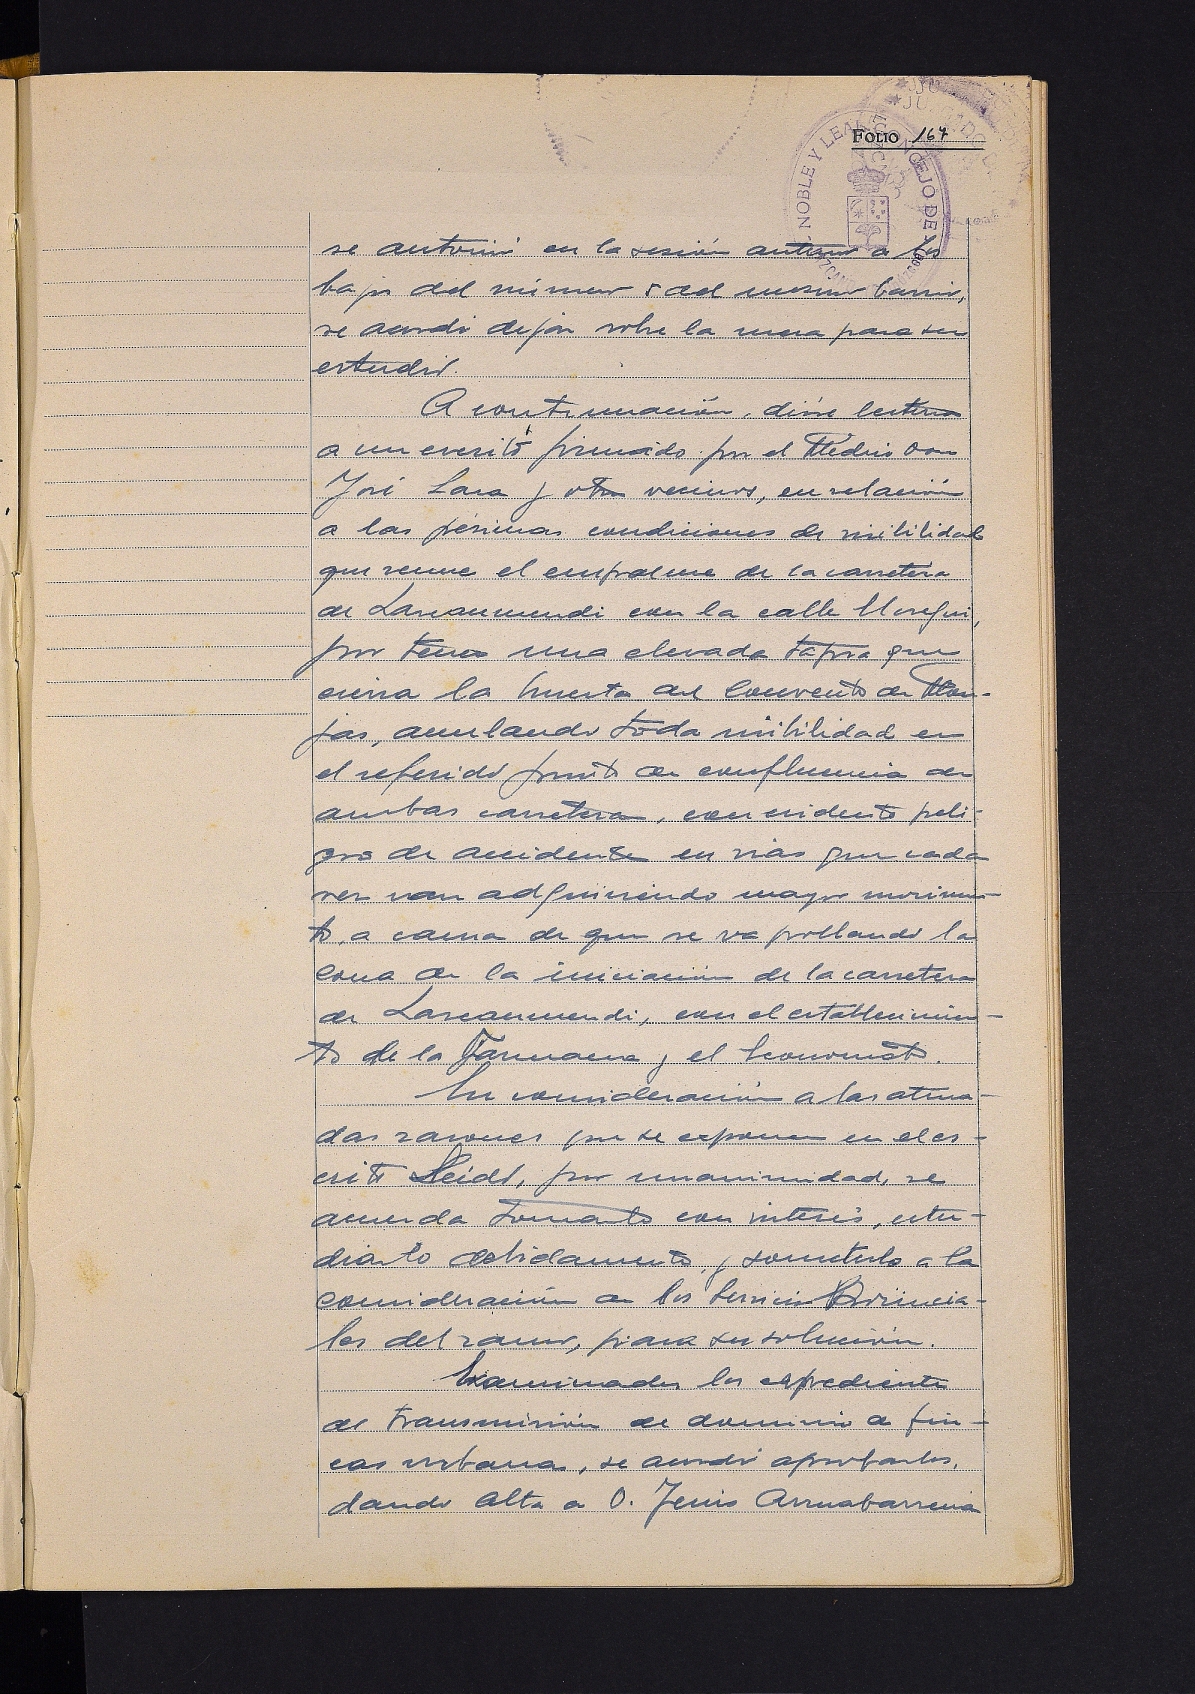 FOLIO 167
NOBLE Y LEAL CONCEJO DE
se autorizó en la sesión anterior a los
bajos del número 5 del mismo barrio,
se acordó dejar sobre la mesa para su
estudio.
A continuación, dióse lectura
a un escrito firmado por el Médico Don
José Lasa y otros vecinos, en relación
a las pésimas condiciones de visibilidad
que reune el empalme de la carretera
de Lascaumendi con la calle
por tener una elevada tapia que
cierra la huerta del Convento de Mon-
jas, anulando toda visibilidad en
el referido punto de confluencia de
ambas carreteras, con evidente peli-
gro de accidente en vias que cada
vez van adquiriendo mayor movimien-
to, a causa de que se va poblando la
zona de la iniciación de la carretera
de Lascaumendi, con el establecimien-
to de la Farmacia y el Economato.
En consideración a las atina-
das razones que se exponen en el es-
crito leido, por unanimidad, se
acuerda tomarlo con interés, estu-
diarlo debidamente, y someterlo a la
consideración de los Servicios Provincia-
les del ramo, para su solución.
Examinados los expedientes
de transmisión de dominio de fin-
cas urbanas, se acordó aprobarlos,
dando alta a D. Jesús Arruabarrena